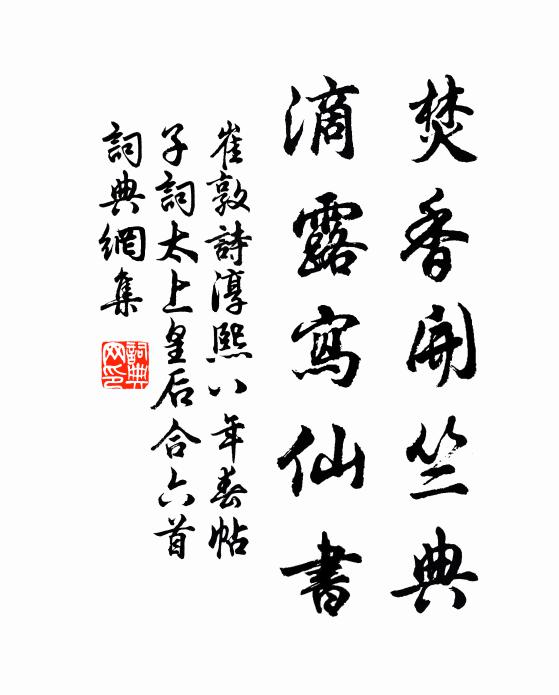 焚香開竺典
滴露寫仙書
崔敦詩淳熙八年春帖
子詞太上皇后合六首
詞典網集
詞典
网印